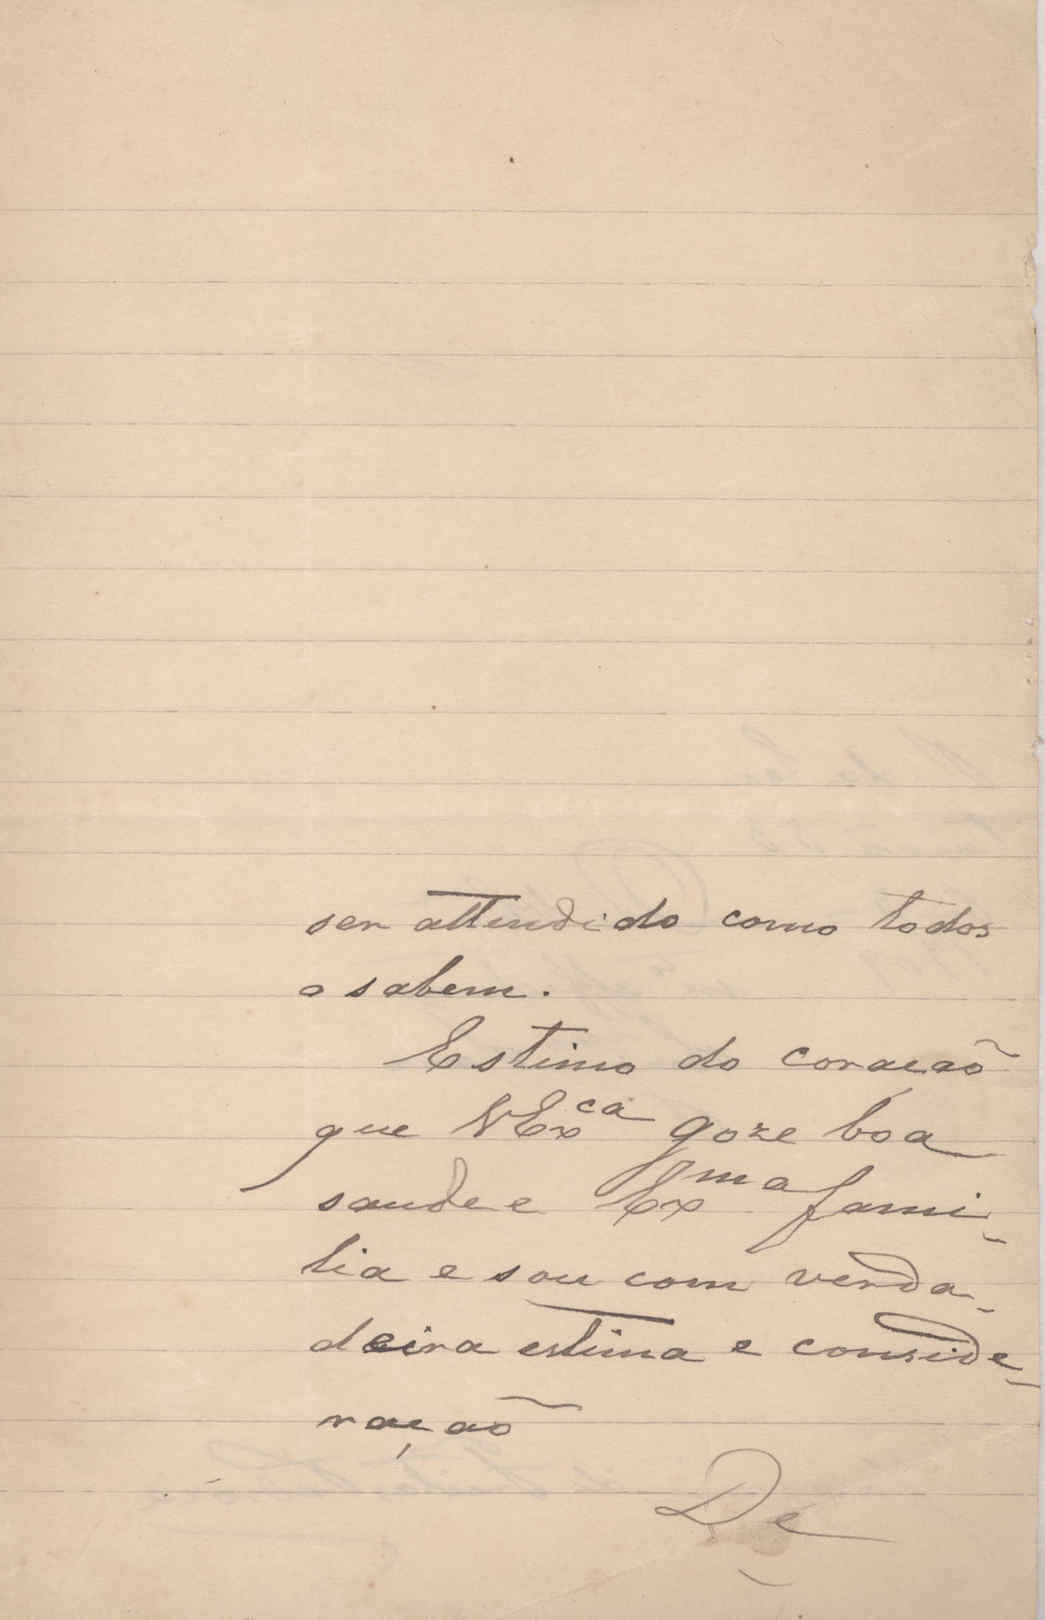 ser attendido como todos
o sabem.
Estimo do coração
que VEx.ca goze boa
saude e Ex.ma fami-
lia e sou com verda-
deira estima e conside-
ração
De